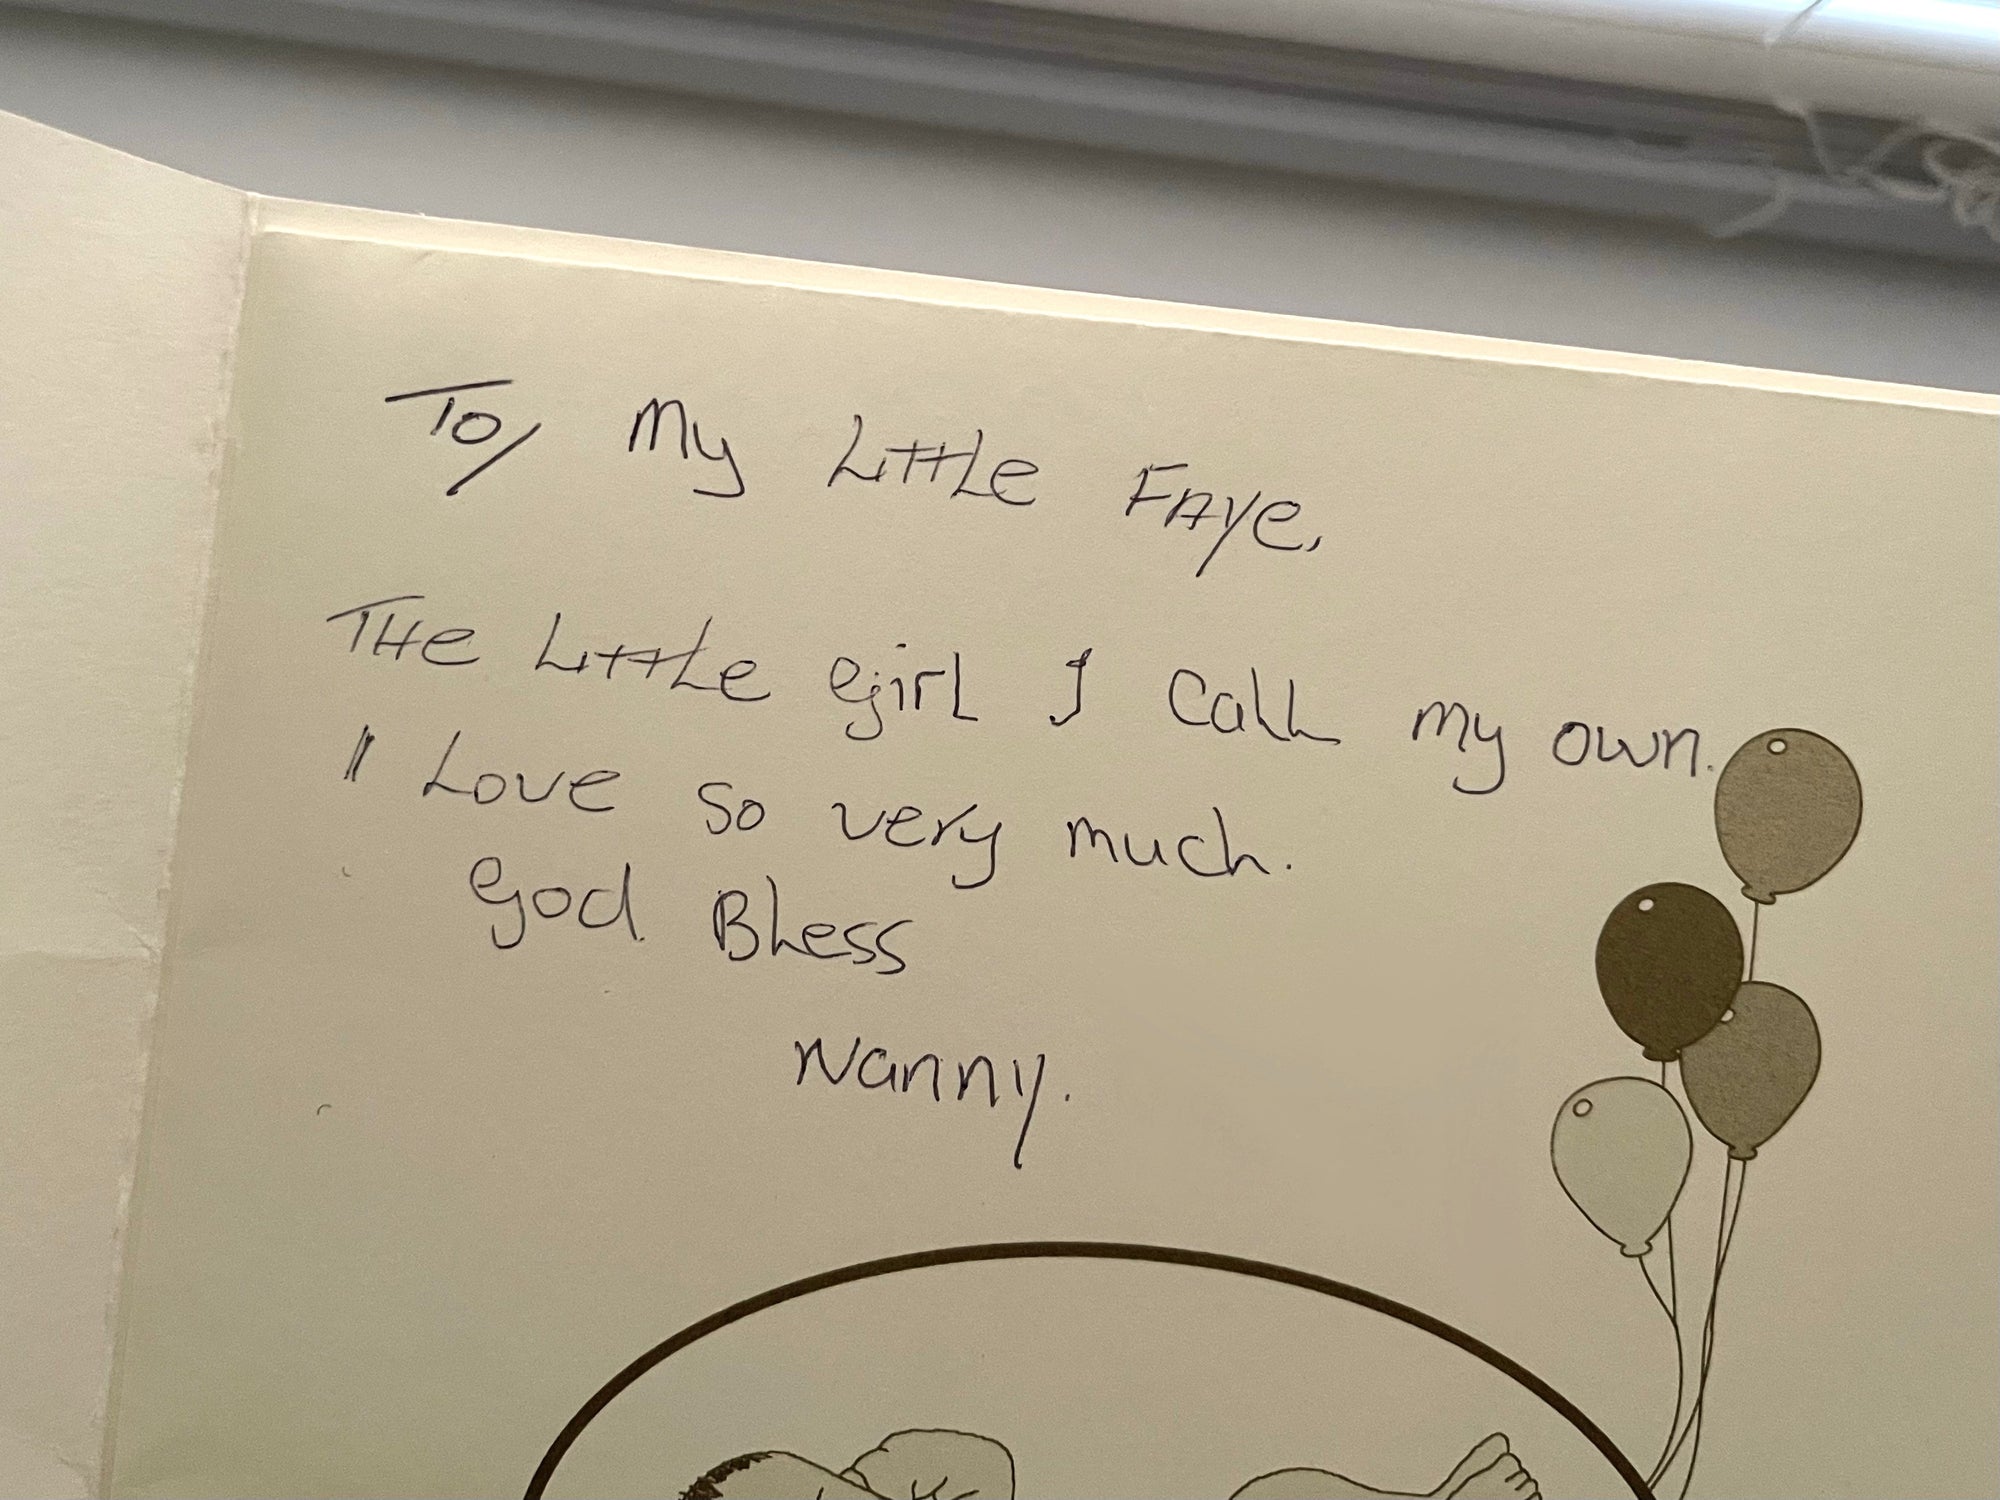 To/ My Little Faye,
THe Little girl I call my own.
I Love so very much.
God Bless
Nanny.